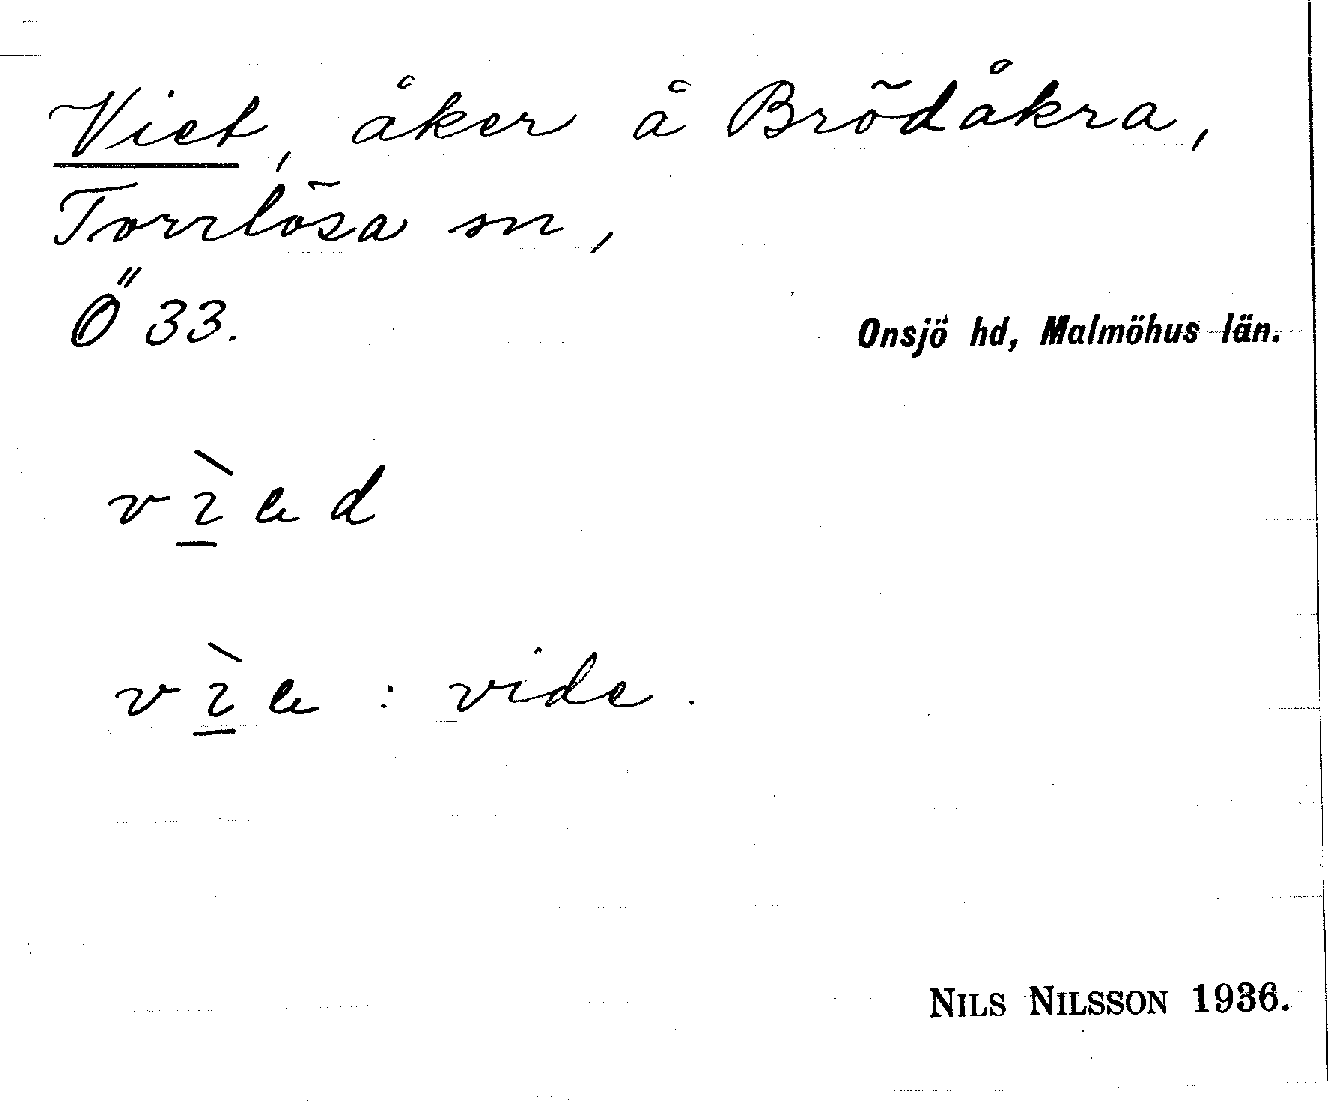 Viet, åker å Brödåkra,
Torrlösa sn,
Ö 33.
Onsjö hd, Malmöhus län.
vɩ̲̀ed
vɩ̲̀e : vide.
NILS NILSSON 1936.